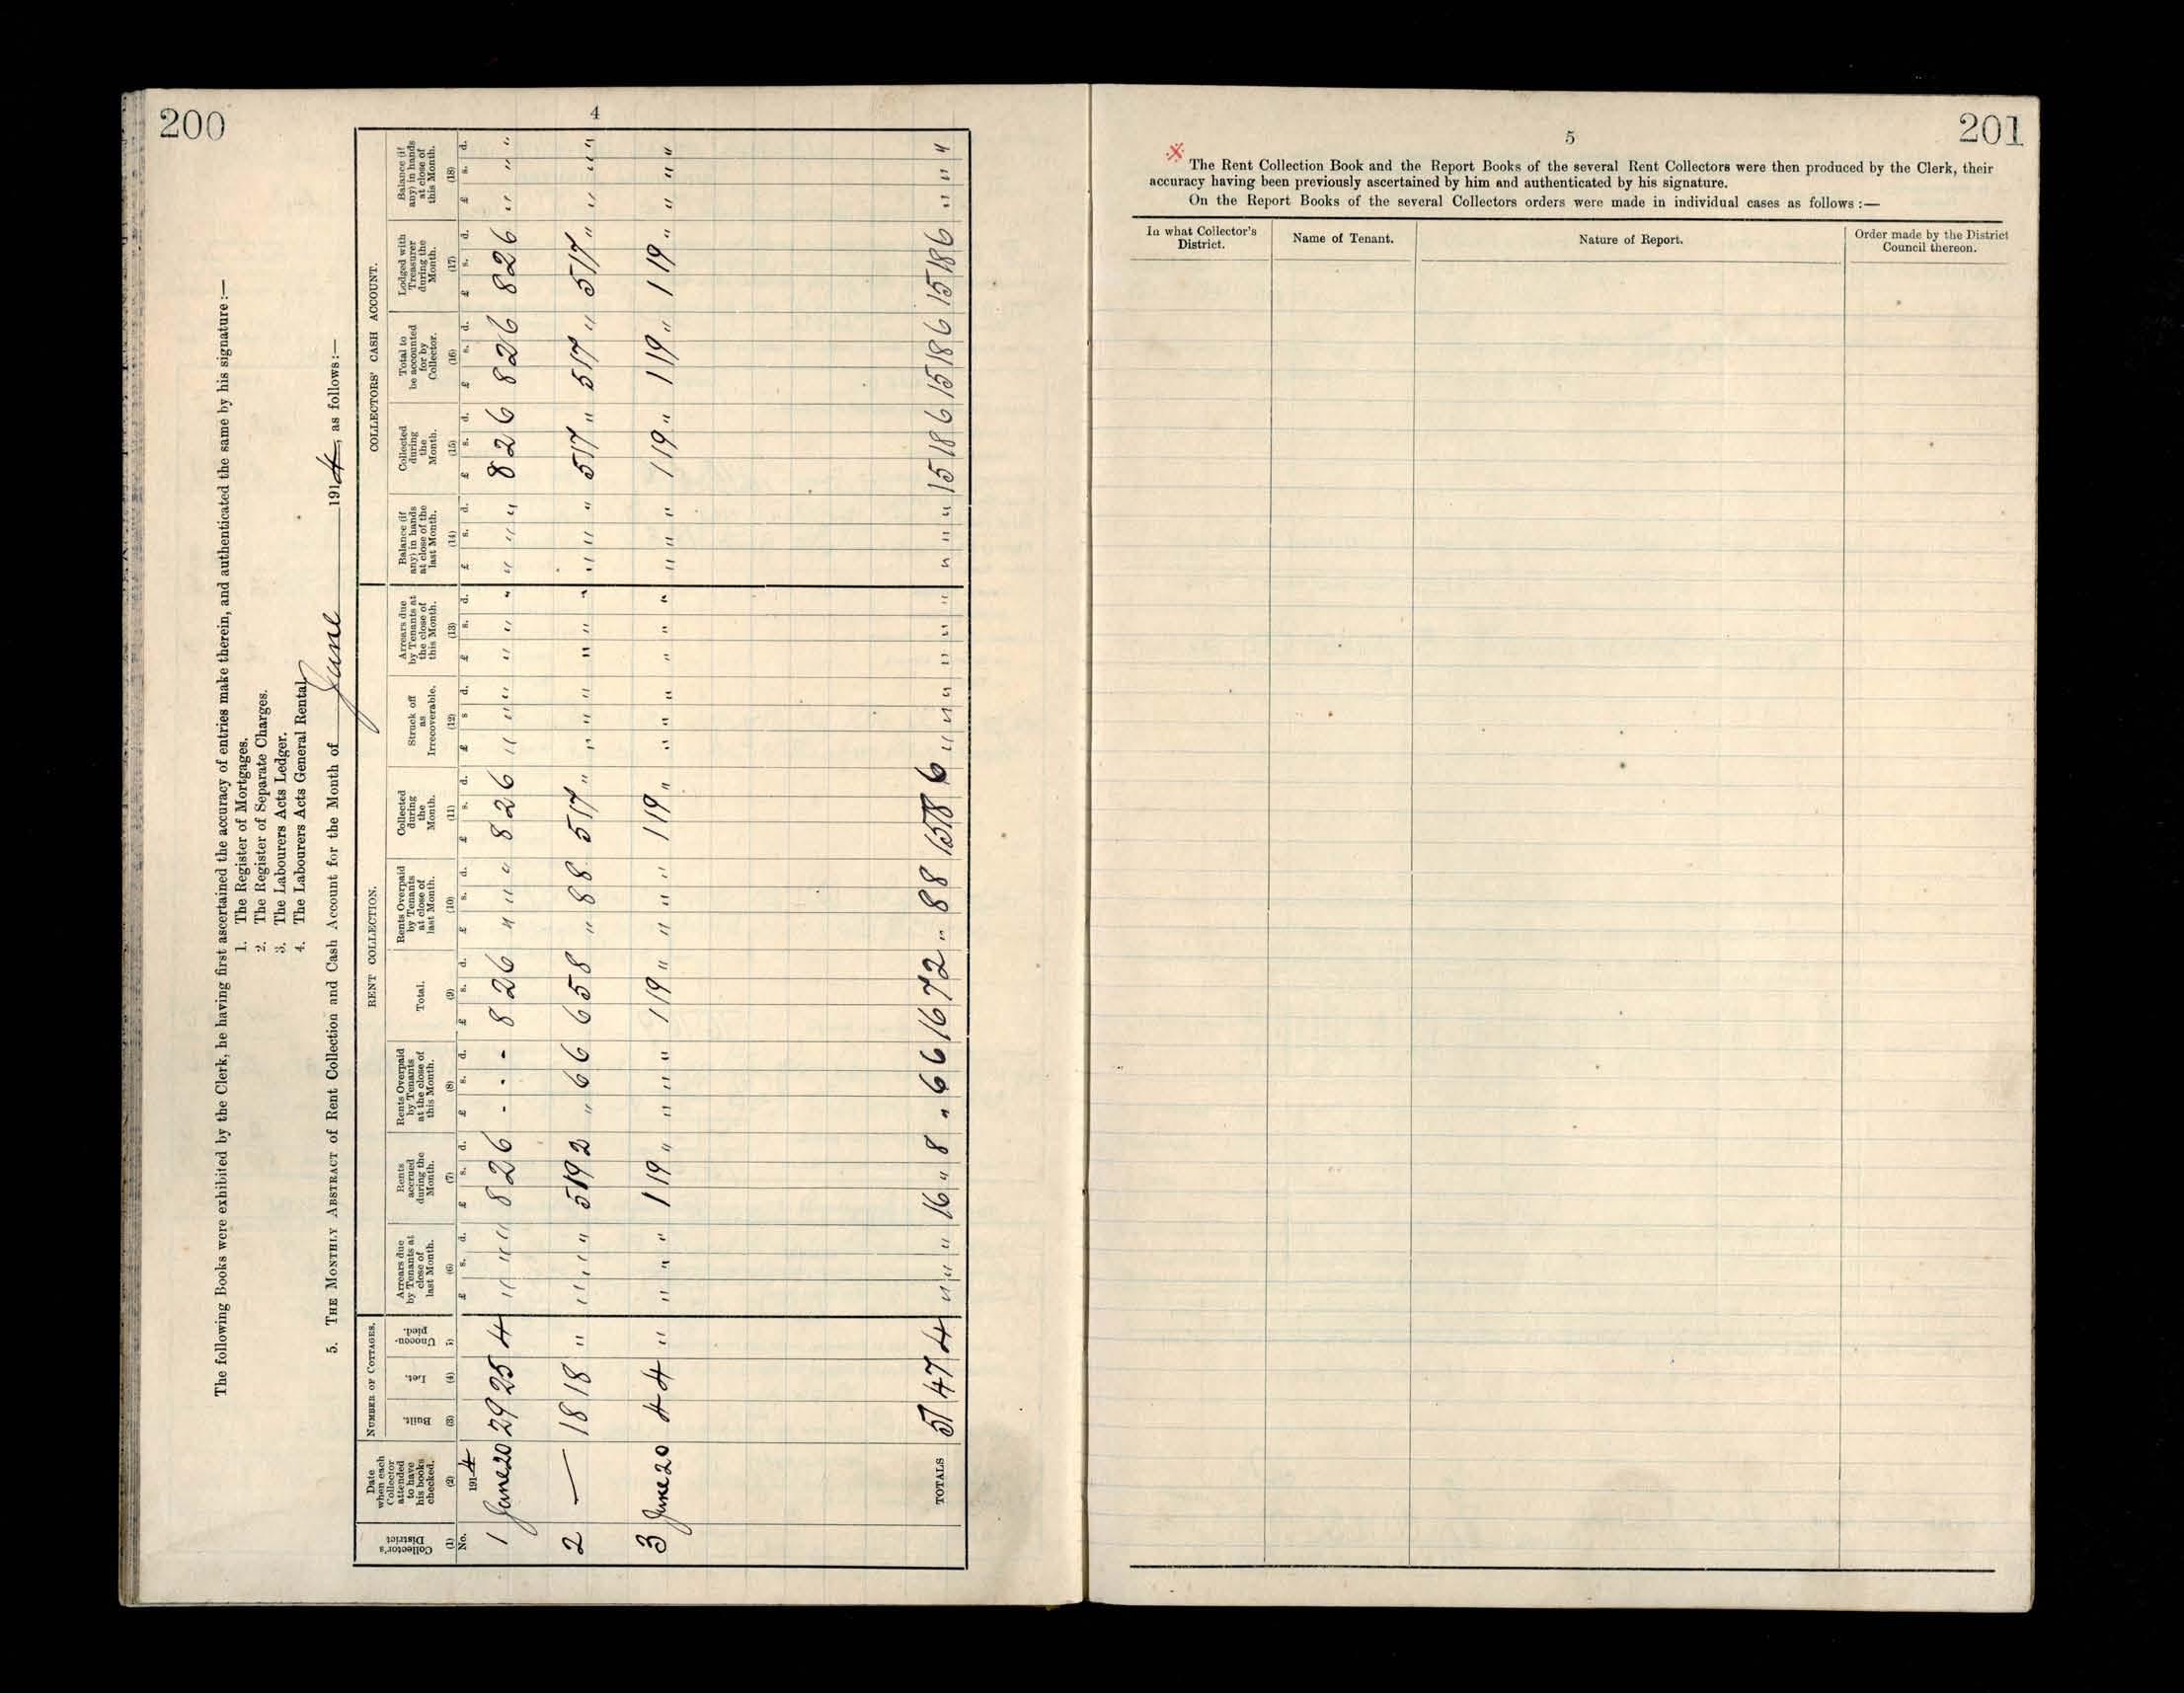 200
4
The following Books were exhibited by the Clerk, he having first ascertained the accuracy of entries make therein, and authenticated the same by his signature :—
1. The Register of Mortgages.
2. The Register of Separate Charges.
3. The Labourers Acts Ledger.
4. The Labourers Acts General Rental.
5. THE MONTHLY ABSTRACT of Rent Collection and Cash Account for the Month of June 1914, as follows :—
NUMBER OF COTTAGES. RENT COLLECTION. COLLECTORS' CASH ACCOUNT.
Collector's District (1) No.
Date when each Collector attended to have his books checked. (2) 1914
Built. (3)
Let. (4)
Unoccupied. (5)
Arrears due by Tenants at close of last Month. (6) £ s. d.
Rents accrued during the Month. (7) £ s. d.
Rents Overpaid by Tenants at the close of this Month. (8) £ s. d.
Total. (9) £ s. d.
Rents Overpaid by Tenants at close of last Month. (10) £ s. d.
Collected during the Month. (11) £ s. d.
Struck off as Irrecoverable. (12) £ s d.
Arrears due by Tenants at the close of this Month. (13) £ s. d.
Balance (if any) in hands at close of the last Month. (14) £ s. d.
Collected during the Month. (15) £ s. d.
Total to be accounted for by Collector. (16) £ s. d.
Lodged with Treasurer during the Month. (17) £ s. d.
Balance (if any) in hands at close of this Month. (18) £ s. d.
1 June 20 29 25 4 " " " 8 2 6 - - - 8 2 6 " " " 8 2 6 " " " " " " " " " 8 2 6 8 2 6 8 2 6 " " "
2 — 18 18 " " " " 5 19 2 " 6 6 6 5 8 " 8 8 5 17 " " " " " " " " " " 5 17 " 5 17 " 5 17 " " " "
3 June 20 4 4 " " " " 1 19 " " " " 1 19 " " " " 1 19 " " " " " " " " " " 1 19 " 1 19 " 1 19 " " " "
TOTALS 51 47 4 " " " 16 " 8 " 6 6 16 7 2 " 8 8 15 18 6 " " " " " " " " " 15 18 6 15 18 6 15 18 6 " " "
201
5
The Rent Collection Book and the Report Books of the several Rent Collectors were then produced by the Clerk, their
accuracy having been previously ascertained by him and authenticated by his signature.
On the Report Books of the several Collectors orders were made in individual cases as follows :—
In what Collector's District. Name of Tenant. Nature of Report. Order made by the District Council thereon.